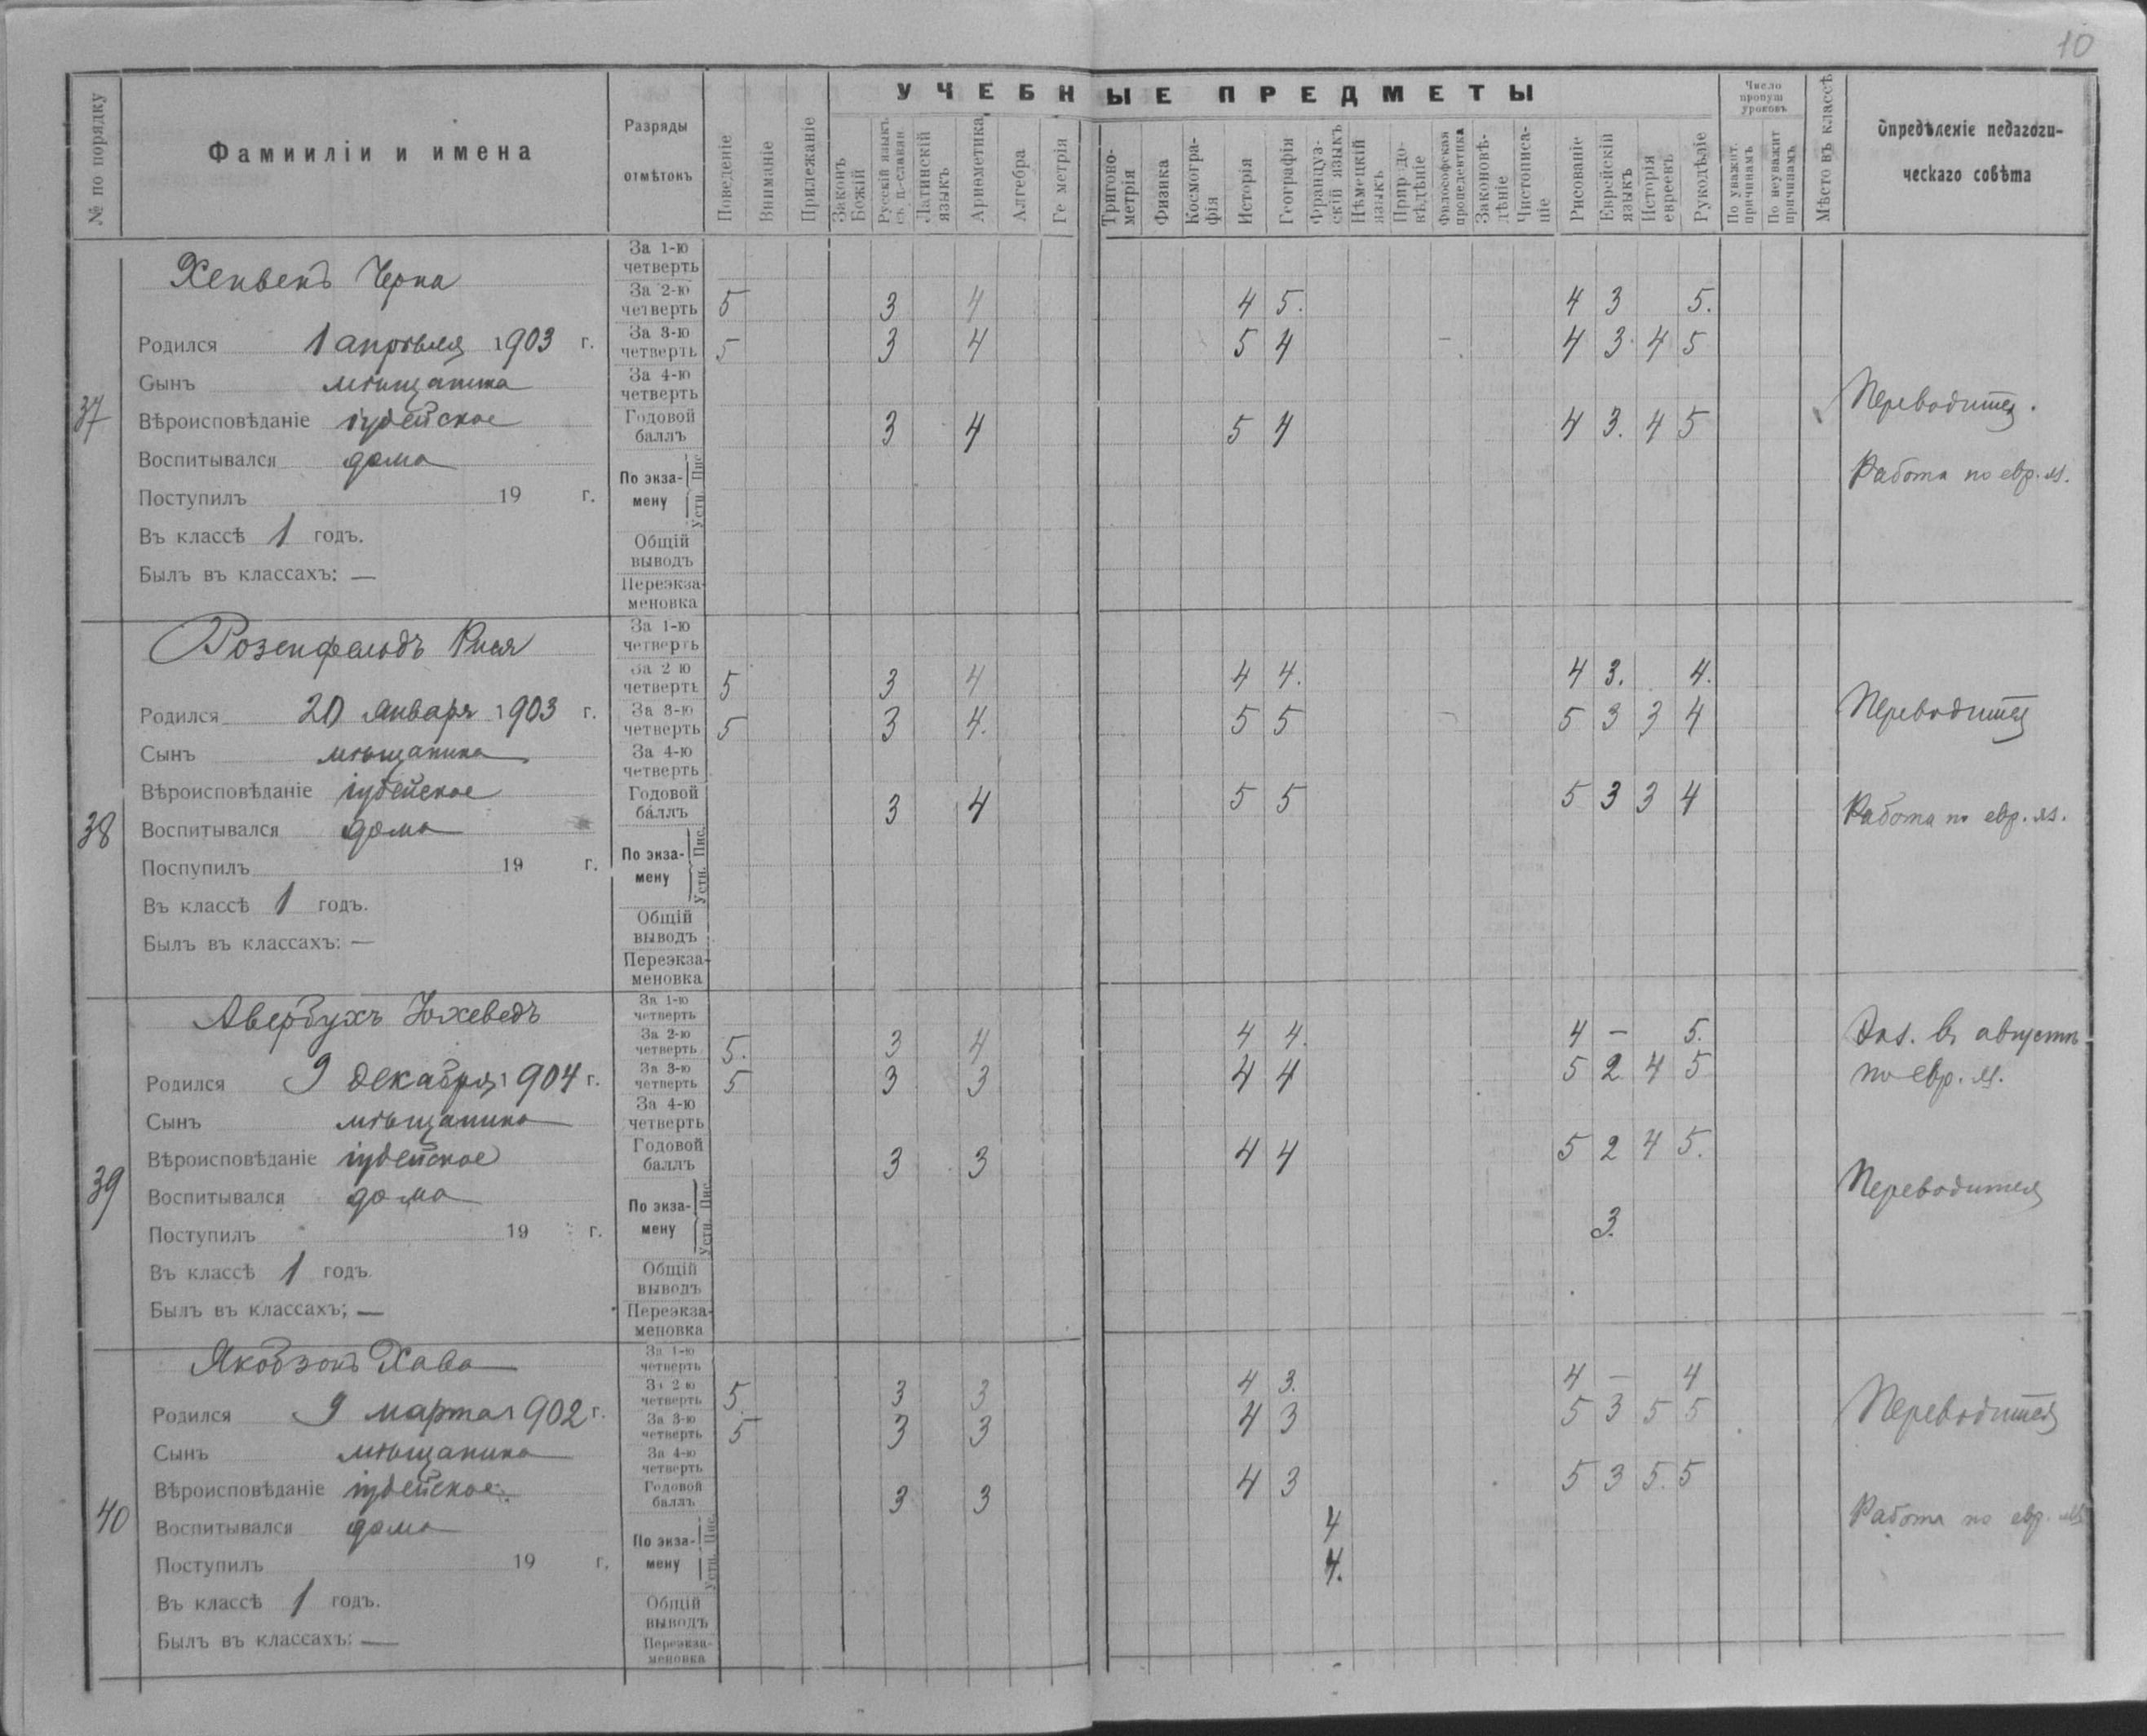 10
№ по порядку
Фамииліи и имена
Разряды
отмѣтокъ
Поведеніе
Вниманіе
Прилежаніе
УЧЕБНЫЕ ПРЕДМЕТЫ
Законъ
Божій
Русскій языкъ
съ ц.-славян.
Латинскій
языкъ
Ариѳметика
Алгебра
Ге метрія
Тригоно-
метрія
Физика
Космогра-
фія
Исторія
Географія
Француз-
скій языкъ
Нѣмецкій
языкъ
Прир до-
вѣдѣніе
Философская
пропедевтика
Законовѣ-
дѣніе
Чистописа-
ніе
Рисованіе
Еврейскій
языкъ
Исторія
евреевъ
Рукодѣліе
Число
пропущ
уроковъ
По уважит.
причинамъ
По неуважит
причинамъ
Мѣсто въ классѣ
Опредѣленіе педагоги-
ческаго совѣта
37
Черна
Родился 1 апрѣля 1903 г.
Сынъ мѣщанина
Вѣроисповѣданіе іудейское
Воспитывался дома
Поступилъ 19 г.
Въ классѣ 1 годъ.
Былъ въ классахъ: —
За 1-ю
четверть
За 2-ю
четверть 5 3 4 4 5. 4 3 5.
За 3-ю
четверть 5 3 4 5 4 4 3 4 5
За 4-ю
четверть
Годовой
баллъ 3 4 5 4 4 3. 4 5
По экза-
мену
Пис
Устн.
Общій
выводъ
Переэкза-
меновка
Переводится.
Работа по евр. яз.
38
Розенфельдъ Рися
Родился 20 января 1903 г.
Сынъ мѣщанина
Вѣроисповѣданіе іудейское
Воспитывался дома
Поспупилъ 19 г.
Въ классѣ 1 годъ.
Былъ въ классахъ: —
За 1-ю
четверть
За 2 ю
четверть 5 3 4 4 4. 4 3. 4.
За 3-ю
четверть 5 3 4. 5 5 5 3 3 4
За 4-ю
четверть
Годовой
баллъ 3 4 5 5 5 3 3 4
По экза-
мену
Пис.
Устн.
Общій
выводъ
Переэкза-
меновка
Переводится
Работа по евр. яз.
39
Авербухъ Юхеведъ
Родился 9 декабря 1904 г.
Сынъ мѣщанина
Вѣроисповѣданіе іудейское
Воспитывался дома
Поступилъ 19 г.
Въ классѣ 1 годъ.
Былъ въ классахъ; —
За 1-ю
четверть
За 2-ю
четверть 5. 3 4 4 4. 4 — 5.
За 3-ю
четверть 5 3 3 4 4 5 2 4 5
За 4-ю
четверть
Годовой
баллъ 3 3 4 4 5 2 4 5.
По экза-
мену 3.
Пис
Устн.
Общій
выводъ
Переэкза-
меновка
Экз. въ августѣ
по евр. яз.
Переводится
40
Якобзонъ Хава
Родился 9 марта 1902 г.
Сынъ мѣщанина
Вѣроисповѣданіе іудейское
Воспитывался дома
Поступилъ 19 г.
Въ классѣ 1 годъ.
Былъ въ классахъ: —
За 1-ю
четверть
За 2 ю
четверть 5. 3 3 4 3. 4 — 4
За 3-ю
четверть 5 3 3 4 3 5 3 5 5
За 4-ю
четверть
Годовой
баллъ 3 3 4 3 5 3 5. 5
По экза-
мену
Пис. 4
Устн. 4.
Общій
выводъ
Переэкза-
меновка
Переводится
Работа по евр. яз